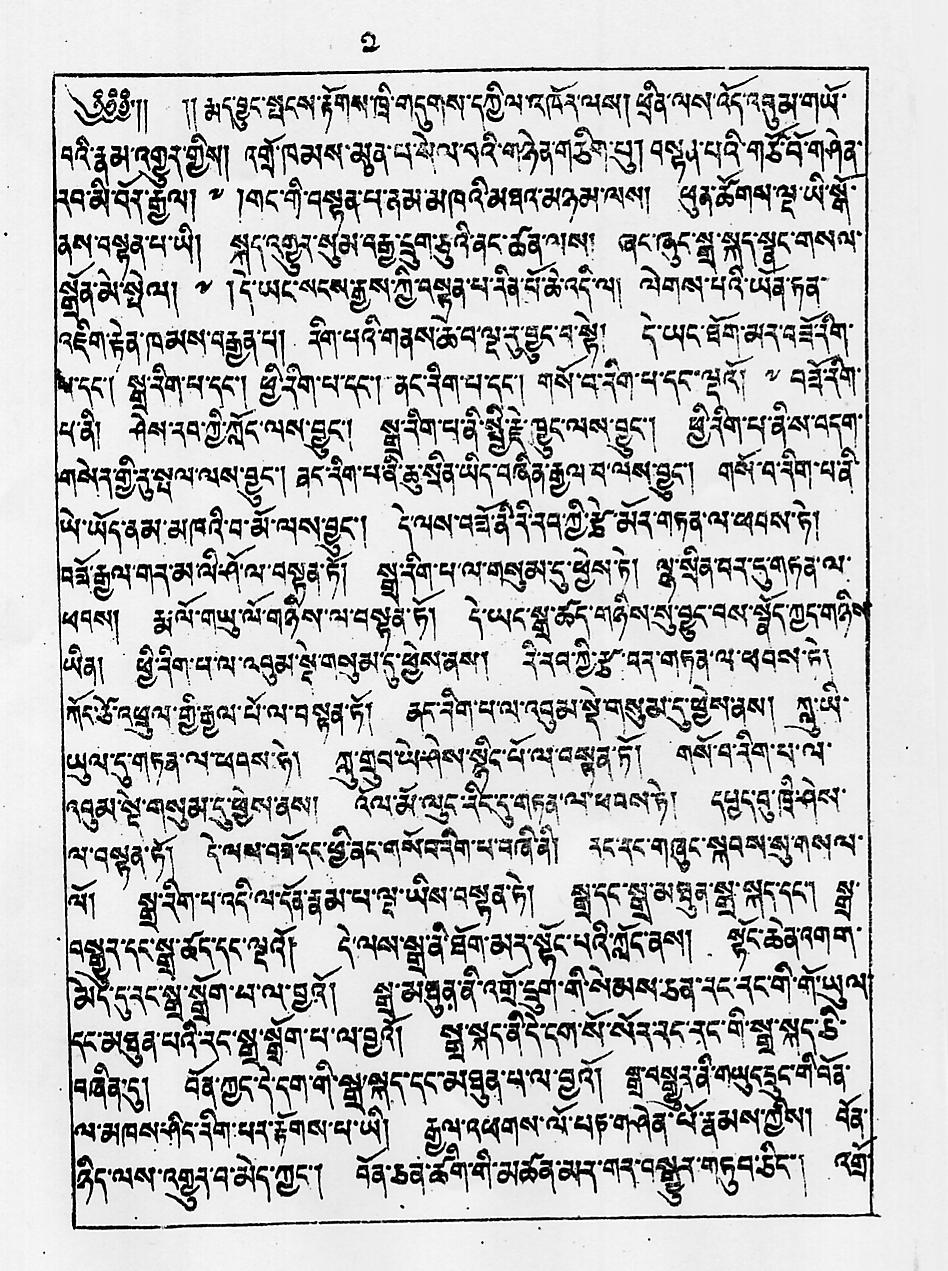 ༢
༄༅༅།། །།རྨད་བྱུང་སྤངས་རྟོགས་ཁྲི་གདུགས་དཀྱིལ་འཁོར་ལས། ཕྲིན་ལས་འོད་འབུམ་གཡོ་
བའི་རྣམ་འགྱུར་གྱིས། འགྲོ་ཁམས་མུན་པ་སེལ་བའི་གཉེན་གཅིག་པུ། བསྟན་པའི་གཙོ་བོ་གཤེན་
རབ་མི་བོར་རྒྱལ། ༧ །གང་གི་བསྟན་པ་ནམ་མཁའི་མཐའ་མཉམ་ལས། ཕུན་ཚོགས་ལྔ་ཡི་སྒོ་
ནས་བསྟན་པ་ཡི། སྐད་འགྱུར་སུམ་བརྒྱ་དྲུག་ཅུའི་ནང་ཚན་ལས། ཞང་ཞུང་སྒྲ་སྐད་སྣང་གསལ་
སྒྲོན་མེ་སྤེལ། ༧ །དེ་ཡང་སངས་རྒྱས་ཀྱི་བསྟན་པ་རིན་པོ་ཆེ་འདི་ལ། ལེགས་པའི་ཡོན་ཏན་
འཇིག་རྟེན་ཁམས་བརྒྱན་པ། རིག་པའི་གནས་ཆེ་བ་ལྔ་རུ་བྱུང་བ་སྟེ། དེ་ཡང་ཐོག་མར་བཟོ་རིག་
པ་དང་། སྒྲ་རིག་པ་དང་། ཕྱི་རིག་པ་དང་། ནང་རིག་པ་དང་། གསོ་བ་རིག་པ་དང་ལྔའོ། ༧ བཟོ་རིག་
པ་ནི། ཤེས་རབ་ཀྱི་ཀློང་ལས་བྱུང་། སྒྲ་རིག་པ་ནི་སྤྱི་རྗེ་ཁྱུང་ལས་བྱུང་། ཕྱི་རིག་པ་ནི་ས་བདག་
གསེར་གྱི་རུ་སྦལ་ལས་བྱུང་། ནང་རིག་པ་ནི་ཆུ་སྲིན་ཡིད་བཞིན་རྒྱལ་བ་ལས་བྱུང་། གསོ་བ་རིག་པ་ནི་
ཡེ་ཡོད་ནམ་མཁའི་བ་མོ་ལས་བྱུང་། དེ་ལས་བཟོ་ནི་རི་རབ་ཀྱི་རྩེ་མོར་གཏན་ལ་ཕབས་ཏེ།
བཟོ་རྒྱལ་གར་མ་ལི་ཤོ་ལ་བསྟན་ཏོ། སྒྲ་རིག་པ་ལ་གསུམ་དུ་ཕྱེས་ཏེ། ལྷ་སྲིན་བར་དུ་གཏན་ལ་
ཕབས། རྨ་ལོ་གཡུ་ལོ་གཉིས་ལ་བསྟན་ཏོ། དེ་ཡང་སྒྲ་ཚད་གཉིས་སུ་བྱུང་བས་སློད་ཀྱང་གཉིས་
ཡིན། ཕྱི་རིག་པ་ལ་འབུམ་སྡེ་གསུམ་དུ་ཕྱེས་ནས། རི་རབ་ཀྱི་རྩ་བར་གཏན་ལ་ཕབས་ཏེ།
ཀོང་ཙེ་འཕྲུལ་གྱི་རྒྱལ་པོ་ལ་བསྟན་ཏོ། ནང་རིག་པ་ལ་འབུམ་སྡེ་གསུམ་དུ་ཕྱེས་ནས། ཀླུ་ཡི་
ཡུལ་དུ་གཏན་ལ་ཕབས་ཏེ། ཀླུ་གྲུབ་ཡེ་ཤེས་སྙིང་པོ་ལ་བསྟན་ཏོ། གསོ་བ་རིག་པ་ལ་
འབུམ་སྡེ་གསུམ་དུ་ཕྱེས་ནས། འོལ་མོ་ལུང་རིང་དུ་གཏན་ལ་ཕབས་ཏེ། དཔྱད་བུ་ཁྲི་ཤེས་
ལ་བསྟན་ཏོ། དེ་ལས་བཟོ་དང་ཕྱི་ནང་གསོ་བ་རིག་པ་བཞི་ནི། རང་རང་གཞུང་སྐབས་སུ་གསལ་
ལོ། སྒྲ་རིག་པ་འདི་ལ་དོན་རྣམ་པ་ལྔ་ཡིས་བསྟན་ཏེ། སྒྲ་དང་སྒྲ་མཐུན་སྒྲ་སྐད་དང་། སྒྲ་
བསྒྱུར་དང་སྒྲ་ཚད་དང་ལྔའོ། དེ་ལས་སྒྲ་ནི་ཐོག་མར་སྟོང་པའི་ཀློང་ནས། སྟོང་ཆེན་འགག་
མེད་དུ་རང་སྒྲ་སྒྲོག་པ་ལ་བྱའོ། སྒྲ་མཐུན་ནི་འགྲོ་དྲུག་གི་སེམས་ཅན་རང་རང་གི་གོ་ཡུལ་
དང་མཐུན་པའི་རང་སྒྲ་སྒྲོག་པ་ལ་བྱའོ། སྒྲ་སྐད་ནི་དེ་དག་སོ་སོར་རང་རང་གི་སྒྲ་སྐད་ཅི་
བཞིན་དུ། བོན་ཀྱང་དེ་དག་གི་སྒྲ་སྐད་དང་མཐུན་པ་ལ་བྱའོ། སྒྲ་བསྒྱུར་ནི་གཡུང་དྲུང་གི་བོན་
ལ་མཁས་ཤིང་རིག་པར་རྟོགས་པ་ཡི། རྒྱལ་འཕགས་ལོ་པཎ་གཤེན་པོ་རྣམས་ཀྱིས། བོན་
ཉིད་ལས་འགྱུར་བ་མེད་ཀྱང་། བོན་ཅན་ཚིག་གི་མཚོན་མར་གར་བསྒྱུར་གཏུབ་ཅིང་། འགྲོ་